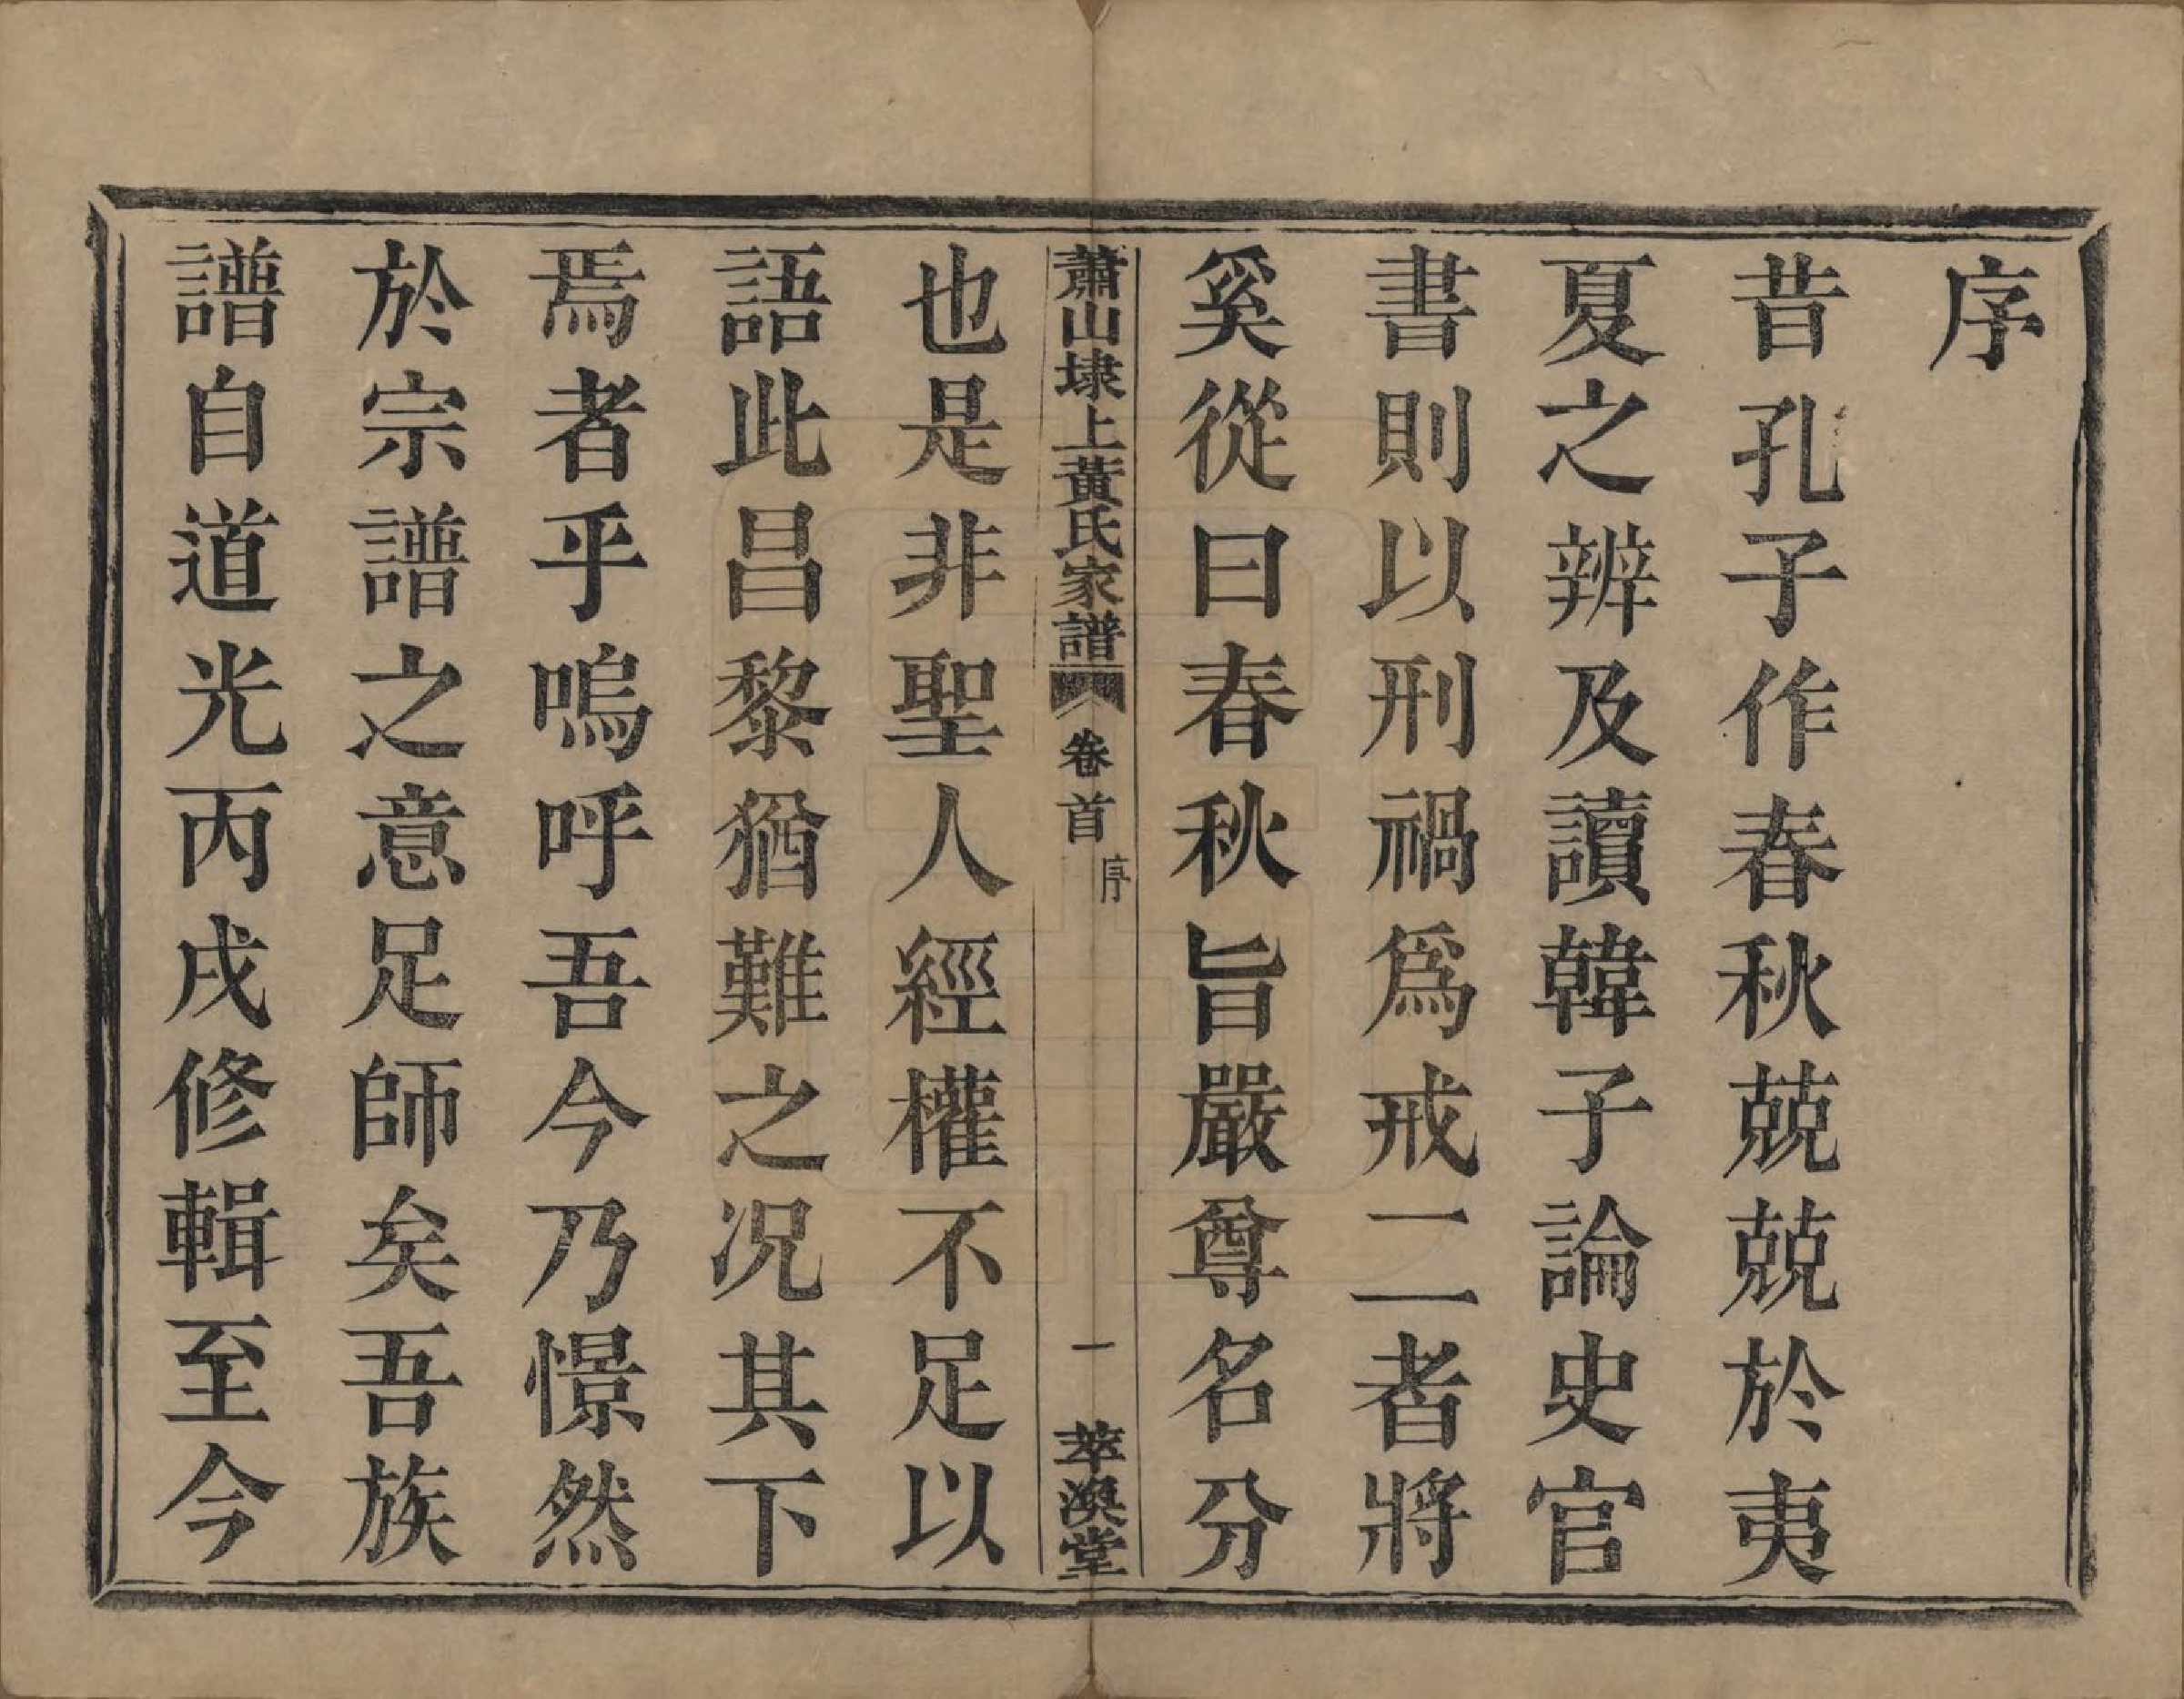 序
昔孔子作春秋兢兢於夷
夏之辨及讀韓子論史官
書則以刑禍爲戒二者將
奚從曰春秋旨嚴尊名分
蕭山埭上黃氏家譜
卷首
序
一
萃渙堂
也是非聖人經權不足以
語此昌黎猶難之况其下
焉者乎嗚呼吾今乃憬然
於宗譜之意足師矣吾族
譜自道光丙戌修輯至今